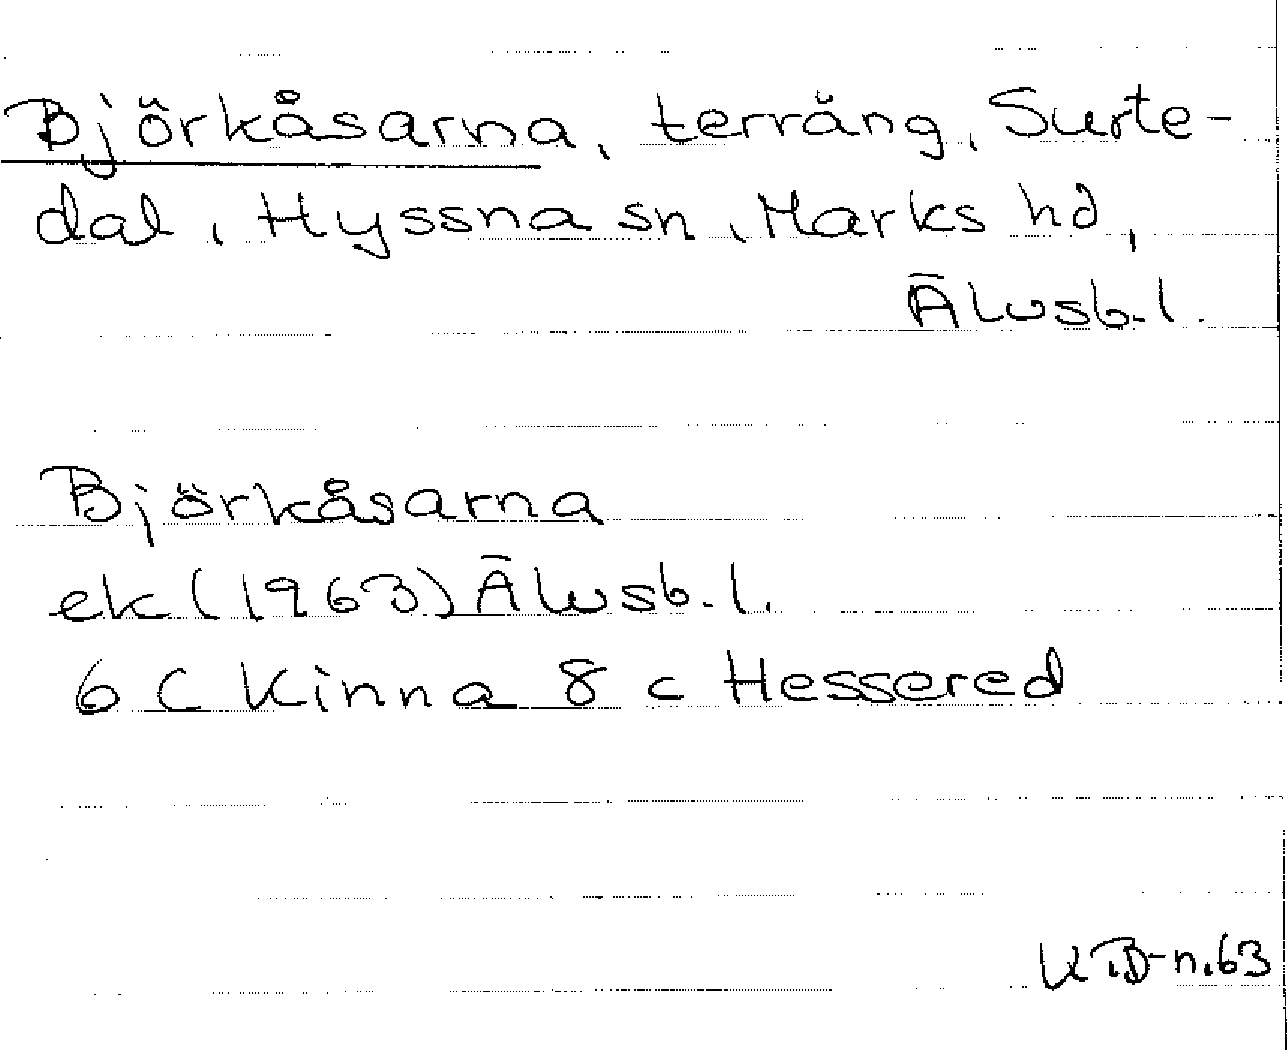 Björkåsarna, terräng, Surte-
dal, Hyssna sn, Marks hd,
Älvsb. l.
Björkåsarna
ek (1963) Älvsb. l.
6 C Kinna 8 c Hessered
K.B-n.63